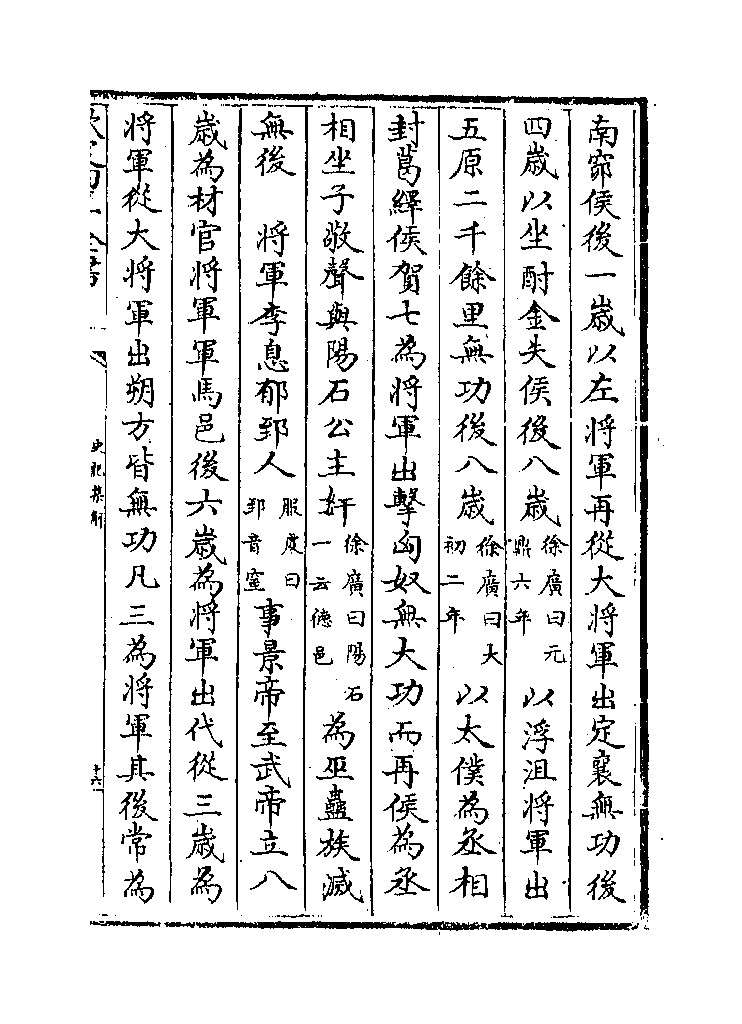 南窌侯後一歲以左將軍再從大將軍出定襄無功後
四歲以坐酎金失侯後八歲徐廣曰元鼎六年以浮沮將軍出
五原二千餘里無功後八歲徐廣曰大初二年以太僕為丞相
封葛繹侯賀七為將軍出擊匈奴無大功而再侯為丞
相坐子敬聲與陽石公主奸徐廣曰陽石一云德邑為巫蠱族滅
無後　將軍李息郁郅人服虔曰郅音窒事景帝至武帝立八
歲為材官將軍軍馬邑後六歲為將軍出代從三歲為
將軍從大將軍出朔方皆無功凡三為將軍其後常為
史記集解
十六